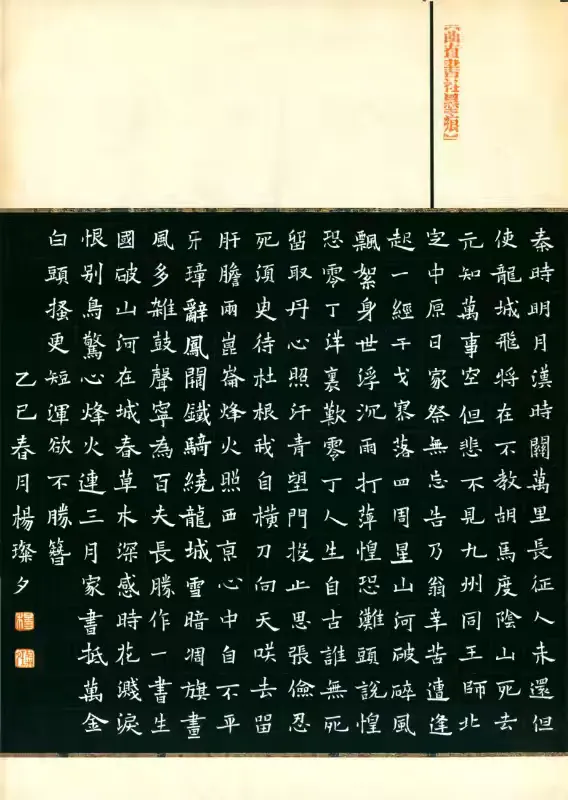 【曲直書社墨痕】
秦時明月漢時關萬里長征人未還但
使龍城飛將在不教胡馬度陰山死去
元知萬事空但悲不見九州同王師北
定中原日家祭無忘告乃翁辛苦遭逢
起一經干戈寥落四周星山河破碎風
飄絮身世浮沉雨打萍惶恐灘頭說惶
恐零丁洋裏歎零丁人生自古誰無死
留取丹心照汗青望門投止思張儉忍
死須臾待杜根我自橫刀向天咲去留
肝膽兩崑崙烽火照西京心中自不平
牙璋辭鳳闕鐵騎繞龍城雪暗凋旗畫
風多雜鼓聲寧為百夫長勝作一書生
國破山河在城春草木深感時花濺淚
恨別鳥驚心烽火連三月家書抵萬金
白頭搔更短渾欲不勝簪
乙巳春月楊璨夕